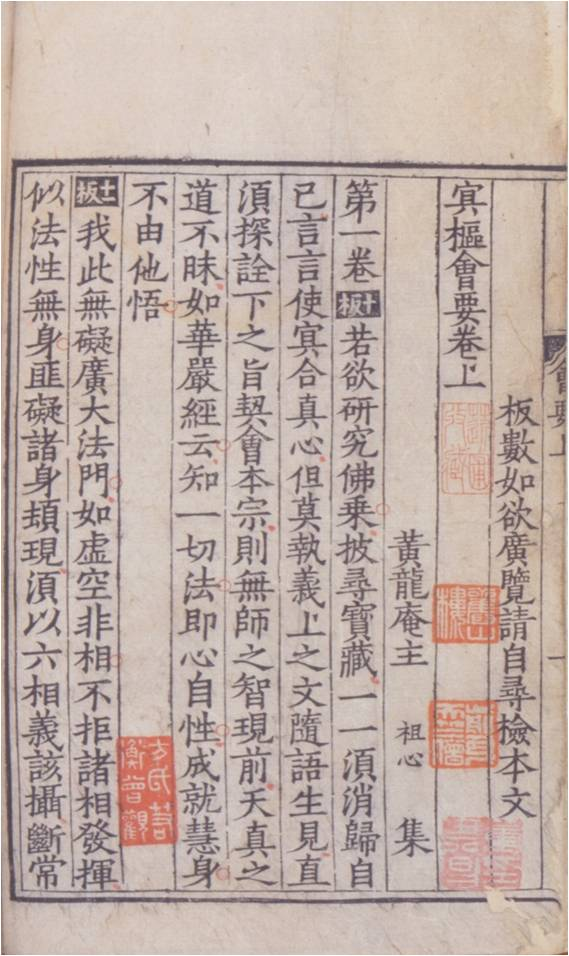 會要上
一
板數如欲廣覽請自尋檢本文
㝠樞會要卷上
舊山樓
黃龍庵主 祖心 集
第一卷十板若欲研究佛乘披尋寶藏一一須消歸自
己言言使㝠合真心但莫執義上之文隨語生見直
須探詮下之旨契會本宗則無師之智現前天真之
道不昧如華嚴經云知一切法即心自性成就慧身
不由他悟
方氏若蘅曾觀
十一板我此無礙廣大法門如虛空非相不拒諸相發揮
似法性無身匪礙諸身頓現須以六相義該攝斷常